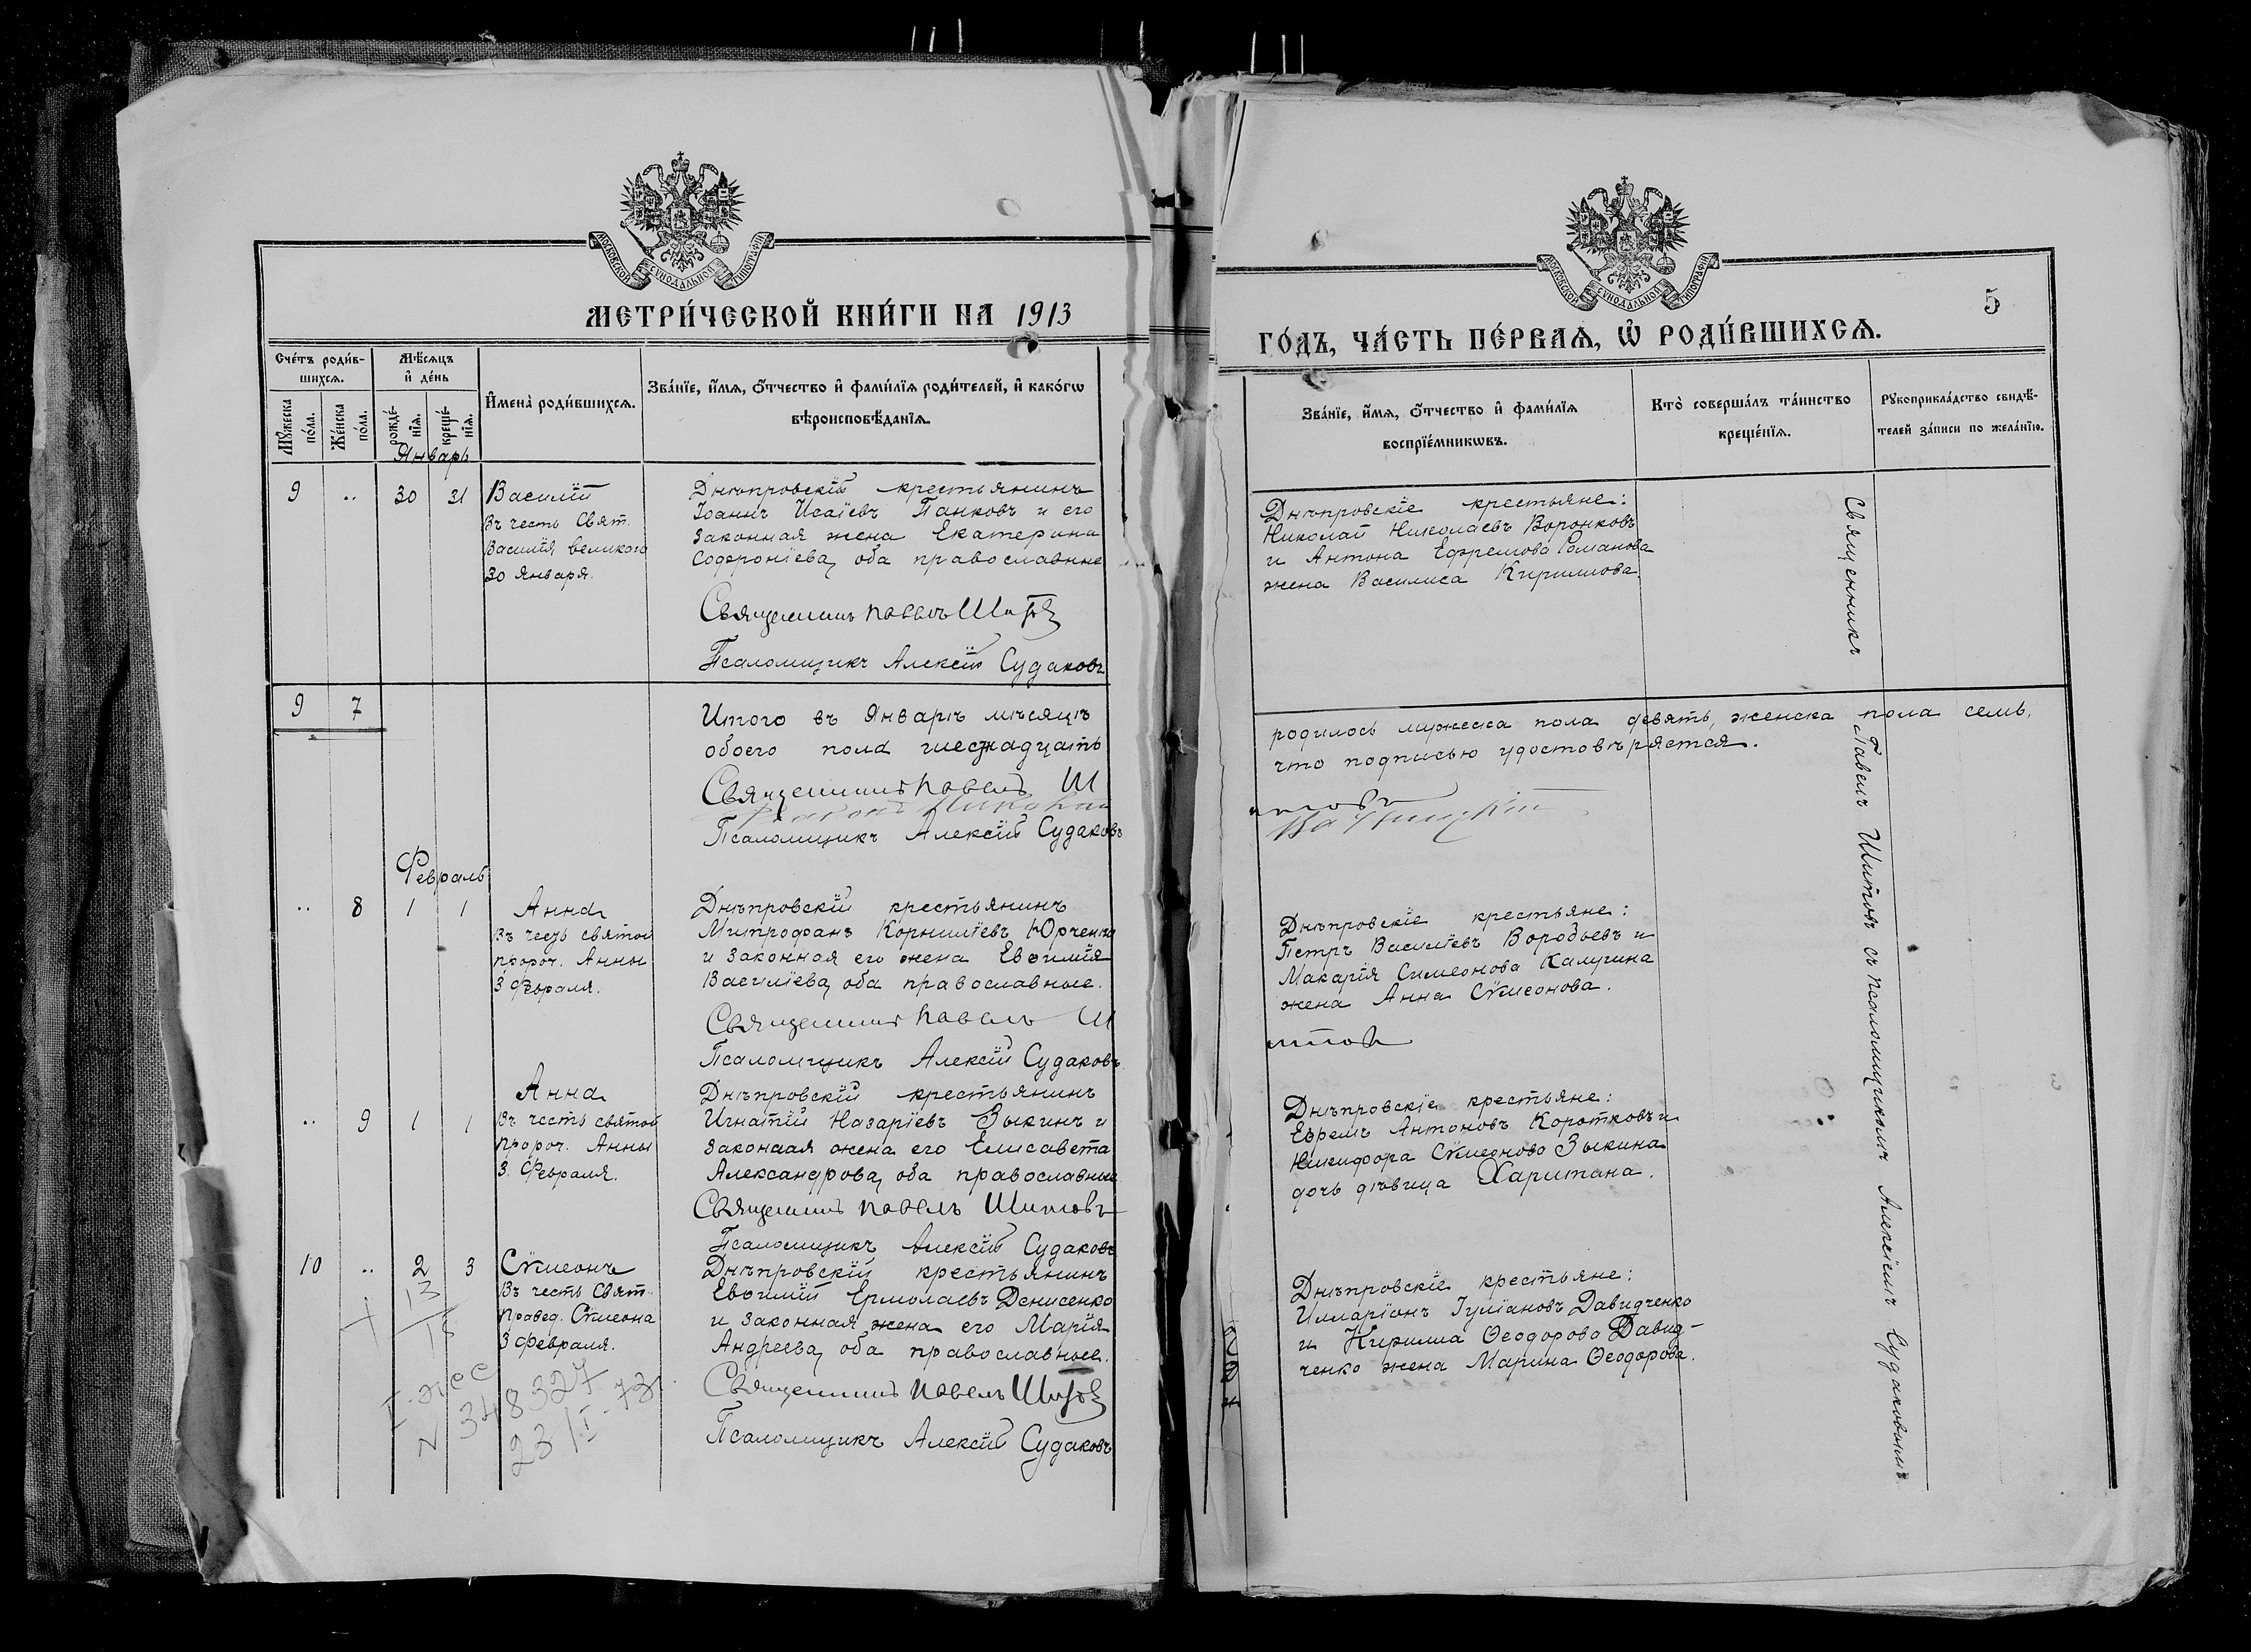 МОСКОВСКОЙ СѴНОДАЛЬНОЙ ТИПОГРАФІИ
МЕТРИ́ЧЕСКОЙ КНИ́ГИ НА 1913
Сче́тъ роди́в-
шихсѧ.
Мꙋ́жеска
по́ла.
Же́нска
по́ла.
Мѣ́сѧцъ
и҆ де́нь
рожде́-
нїѧ.
креще́-
нїѧ.
И҆мена̀ роди́вшихсѧ.
Зва́нїе, и҆́мѧ, ѻ҆́тчество и҆ фами́лїѧ роди́телей, и҆ како́гѡ
вѣроисповѣ́данїѧ.
Январь
9 .. 30 31
Василій
Въ честь Свят.
Василія великого
30 Января.
Днѣпровскій крестьянинъ
Іоаннъ Исаіевъ Панковъ и его
законная жена Екатерина
Софроніева, оба православные
Священникъ Павелъ Шитовъ
Псаломщикъ Алексій Судаковъ
9 7
Итого въ Январѣ мѣсяцѣ
обоего пола шестнадцать
Священникъ Павелъ Ш
Псаломщикъ Алексій Судаковъ
Февраль
.. 8 1 1
Анна
Въ честь святой
пророч. Анны
3 Февраля.
Днѣпровскій крестьянинъ
Митрофанъ Корниліевъ Юрченко
и законная его жена Евѳимія
Василіева, оба православные.
Священникъ Павелъ Ш
Псаломщикъ Алексій Судаковъ
.. 9 1 1
Анна
Въ честь святой
Пророч. Анны
3 Февраля.
Днѣпровскій крестьянинъ
Игнатій Назаріевъ Зыкинъ и
законная жена его Елисавета
Александрова, оба православные
Священникъ Павелъ Шитовъ
Псаломщикъ Алексій Судаковъ
10 .. 2 3
Сѵмеонъ
Въ честь Свят.
Правед. Сѵмеона
3 Февраля.
13
15
N 348327
23/I-73
Днѣпровскій крестьянинъ
Евѳимій Ермолаевъ Денисенко
и законная жена его Марія
Андреева, оба православные.
Священникъ Павелъ Шитовъ
Псаломщикъ Алексій Судаковъ
МОСКОВСКОЙ СѴНОДАЛЬНОЙ ТИПОГРАФІИ
5
ГО́ДЪ, ЧА́СТЬ ПЕ́РВАѦ, Ѽ РОДИ́ВШИХСѦ.
Зва́нїе, и҆́мѧ, ѻ҆́тчество и҆ фами́лїѧ
воспрїе́мникѡвъ.
Кто̀ соверша́лъ та́инство
креще́нїѧ.
Рꙋкоприкла́дство свидѣ́-
телей за́писи по жела́нїю.
Днѣпровскіе крестьяне:
Николай Николаевъ Воронковъ
и Антона Ефремова Романова
жена Василиса Кириллова.
родилось мужеска пола девять, женска пола семь,
что подписью удостовѣряется.
итовъ
Днѣпровскіе крестьяне:
Петръ Василіевъ Воробьевъ и
Макарія Симеонова Калугина
жена Анна Сѵмеонова.
итовъ
Днѣпровскіе крестьяне:
Ефремъ Антоновъ Коротковъ и
Никифора Сѵмеонова Зыкина
дочь дѣвица Харитана.
Днѣпровскіе крестьяне:
Илларіонъ Іуліановъ Давидченко
и Кирилла Ѳеодорова Давид-
ченко жена Марина Ѳеодорова.
Священникъ Павелъ Шитовъ съ псаломщикомъ Алексіемъ Судаковымъ.